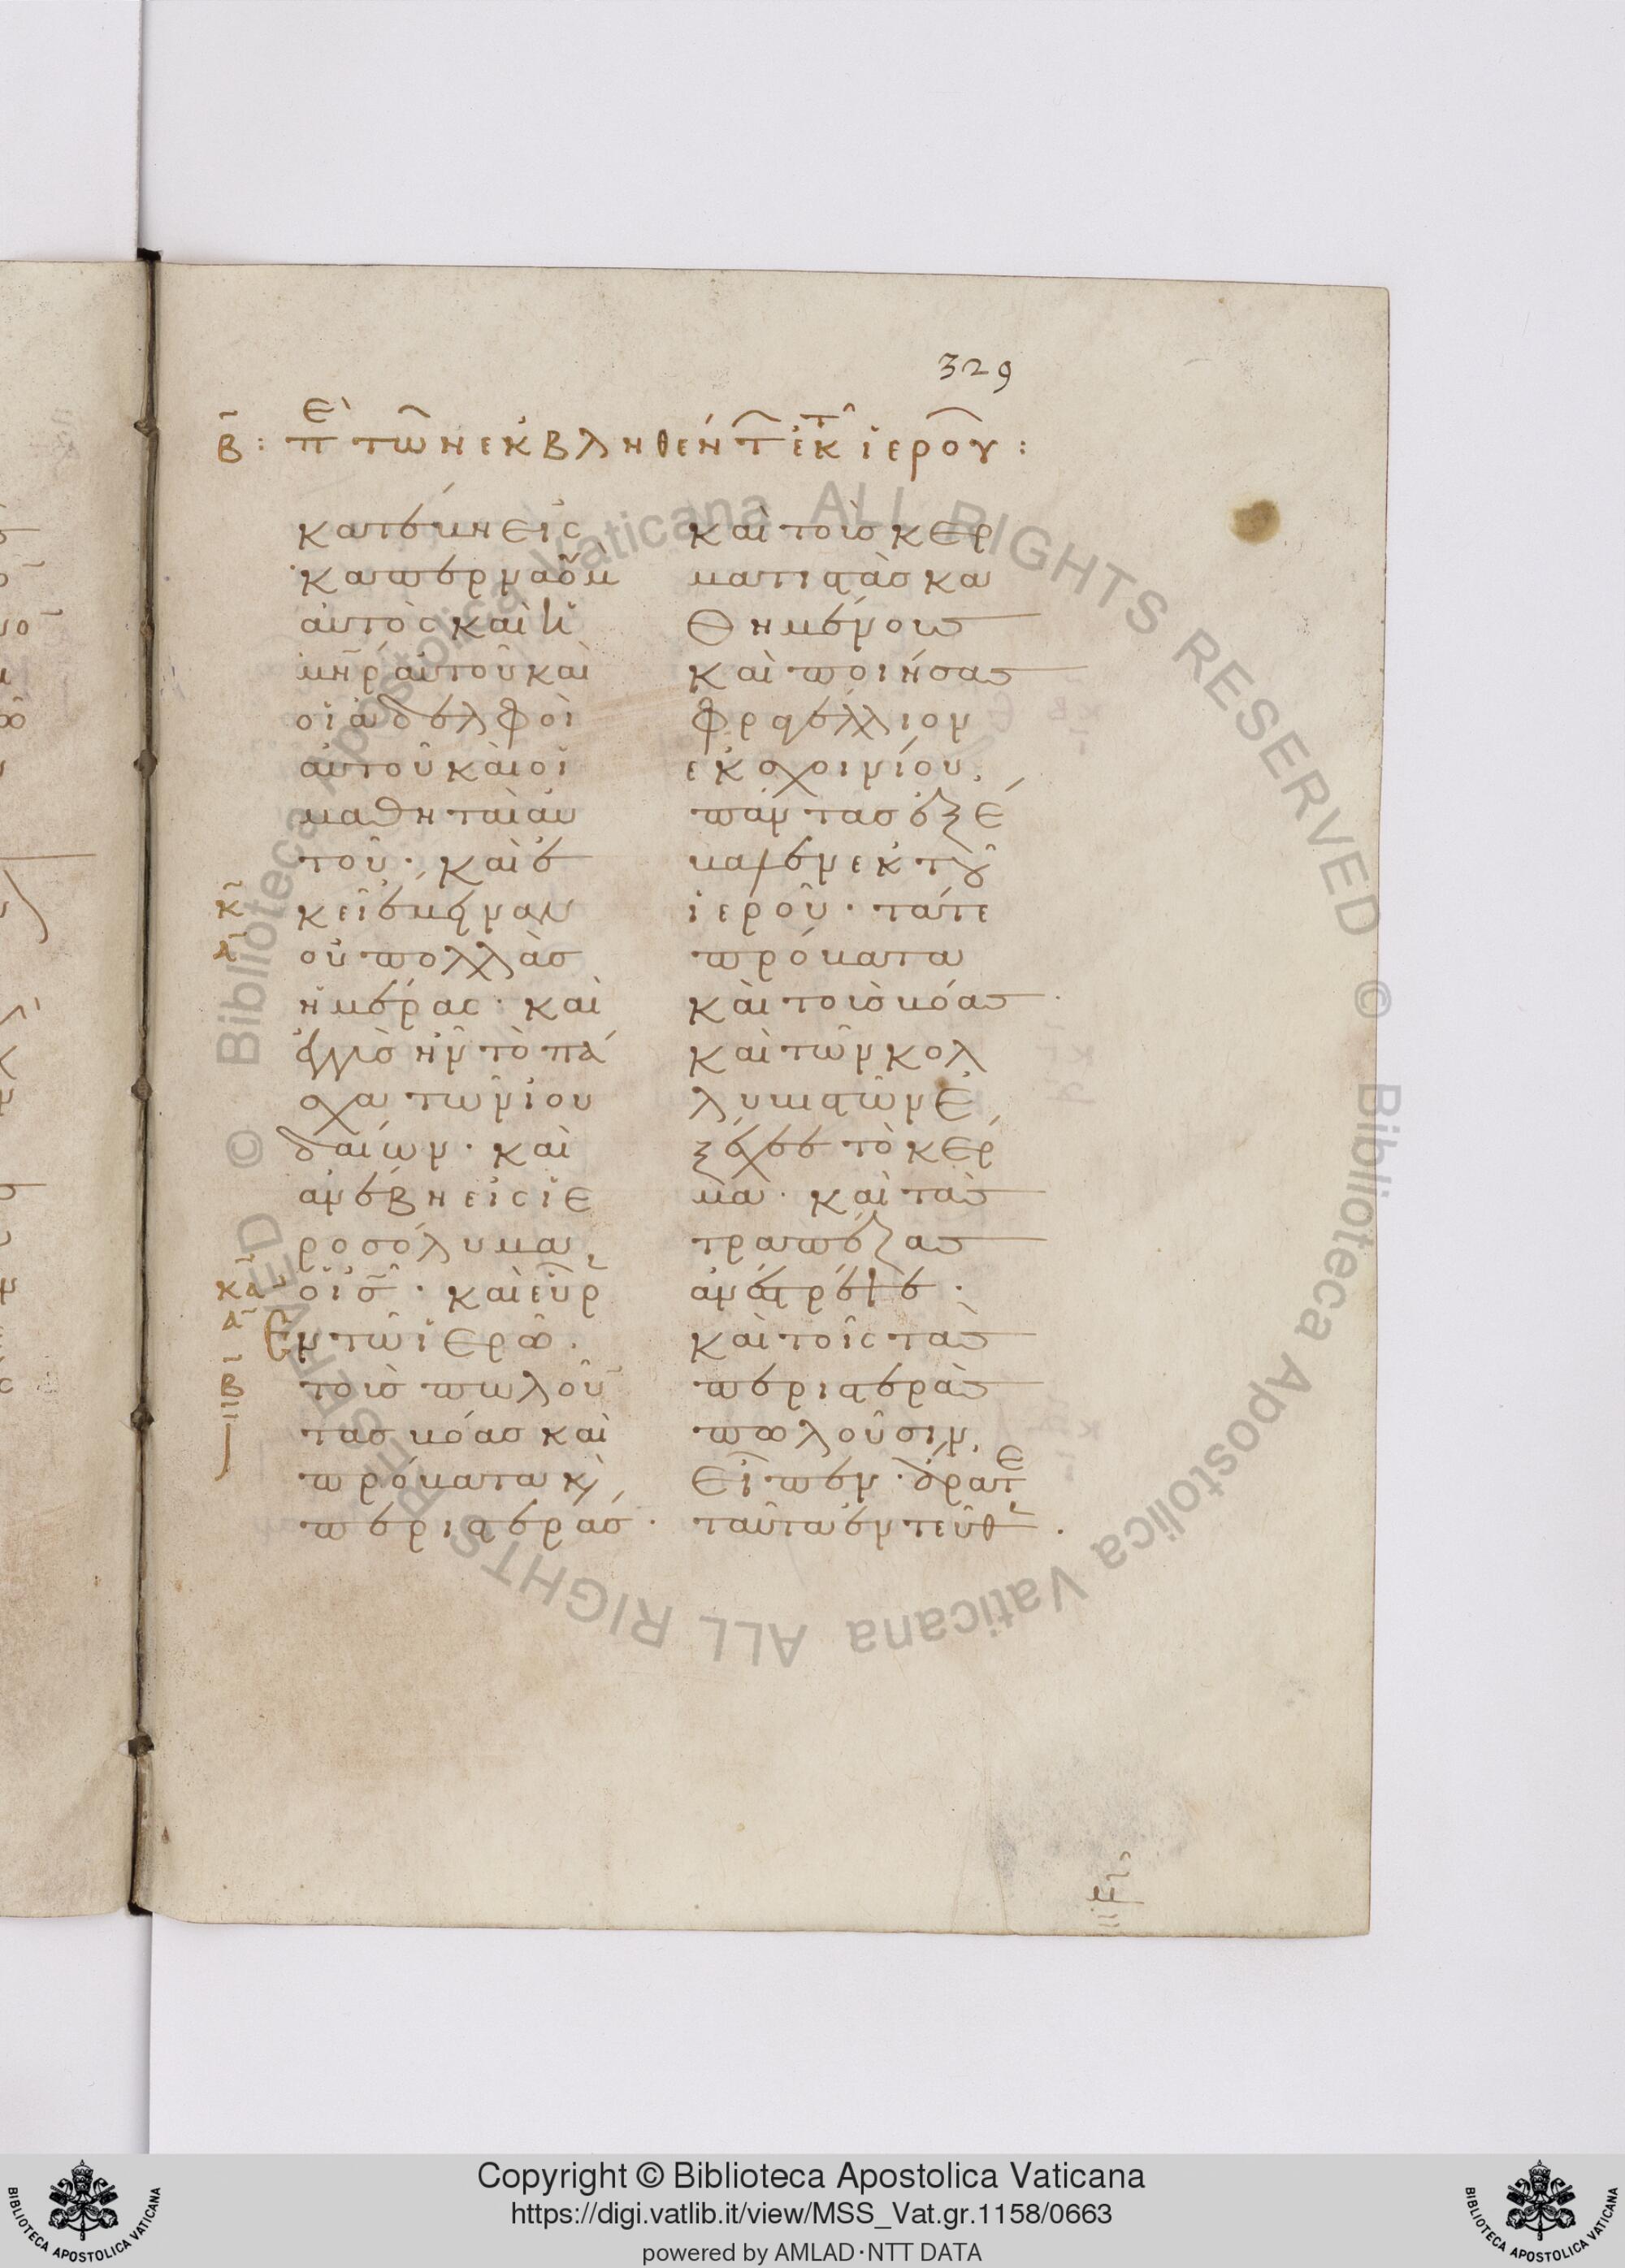 329
Β̄: Πὲ τῶν ἐκβληθέντ ἐκ τ̂ ἱεροῦ:
κατέβη εἰς
καπερναοὺμ
αὐτὸς καὶ ἡ
μη̄ρ αὐτοῦ καὶ
οἱ ἀδελφοὶ
αὐτοῦ καὶ οἱ
μαθηταὶ αὐ
τοῦ· καὶ ἐ
κ̄ κεῖ ἔμειναν
ᾱ οὐ πολλὰσ
ἡμέρας· καὶ
ἐγγὺσ ἦν τὸ πά
σχα τῶν ἰου
δαίων· καὶ
ἀνέβη εἰς ἱε
ροσόλυμα,
κᾱ ὁ ῑσ̄· καὶ εὗρ
ᾱ Ἐν τῶ ἱερῶ·
β̄ τοὺσ πωλοῦ
τασ βόασ καὶ
πρόβατα κὶ
περιστεράσ·
καὶ τοὺσ κερ
ματιστὰσ κα
θημένουσ
καὶ ποιήσασ
φραγέλλιον
ἐκ σχοινίου,
πάντασ ἐξέ
βαλεν ἐκ τοῦ
ἱεροῦ· τά τε
πρόβατα
καὶ τοὺσ βόασ·
καὶ τῶν κολ
λυβιστῶν ἐ
ξέχεε τὸ κέρ
μα· καὶ τὰσ
τραπέζασ
ἀνέστρεψε·
καὶ τοῖς τὰσ
περιστερὰσ
πωλοῦσιν,
εἶπεν· ἄρατε
ταῦτα ἐντεῦθ·
Copyright © Biblioteca Apostolica Vaticana
https://digi.vatlib.it/view/MSS_Vat.gr.1158/0663
powered by AMLAD·NTT DATA
BIBLIOTECA APOSTOLICA VATICANA
BIBLIOTECA APOSTOLICA VATICANA
© Biblioteca Apostolica Vaticana ALL RIGHTS RESERVED © Biblioteca Apostolica Vaticana ALL RIGHTS RESERVED